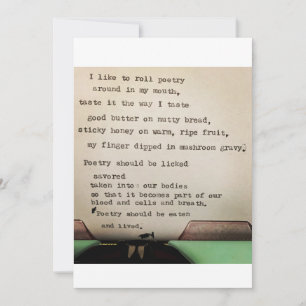 I like to roll poetry
around in my mouth,
taste it the way I taste
good butter on nutty bread,
sticky honey on warm, ripe fruit,
my finger dipped in mushroom gravy.
Poetry should be licked
savored
taken into our bodies
so that it becomes part of our
blood and cells and breath.
Poetry should be eaten
and lived.